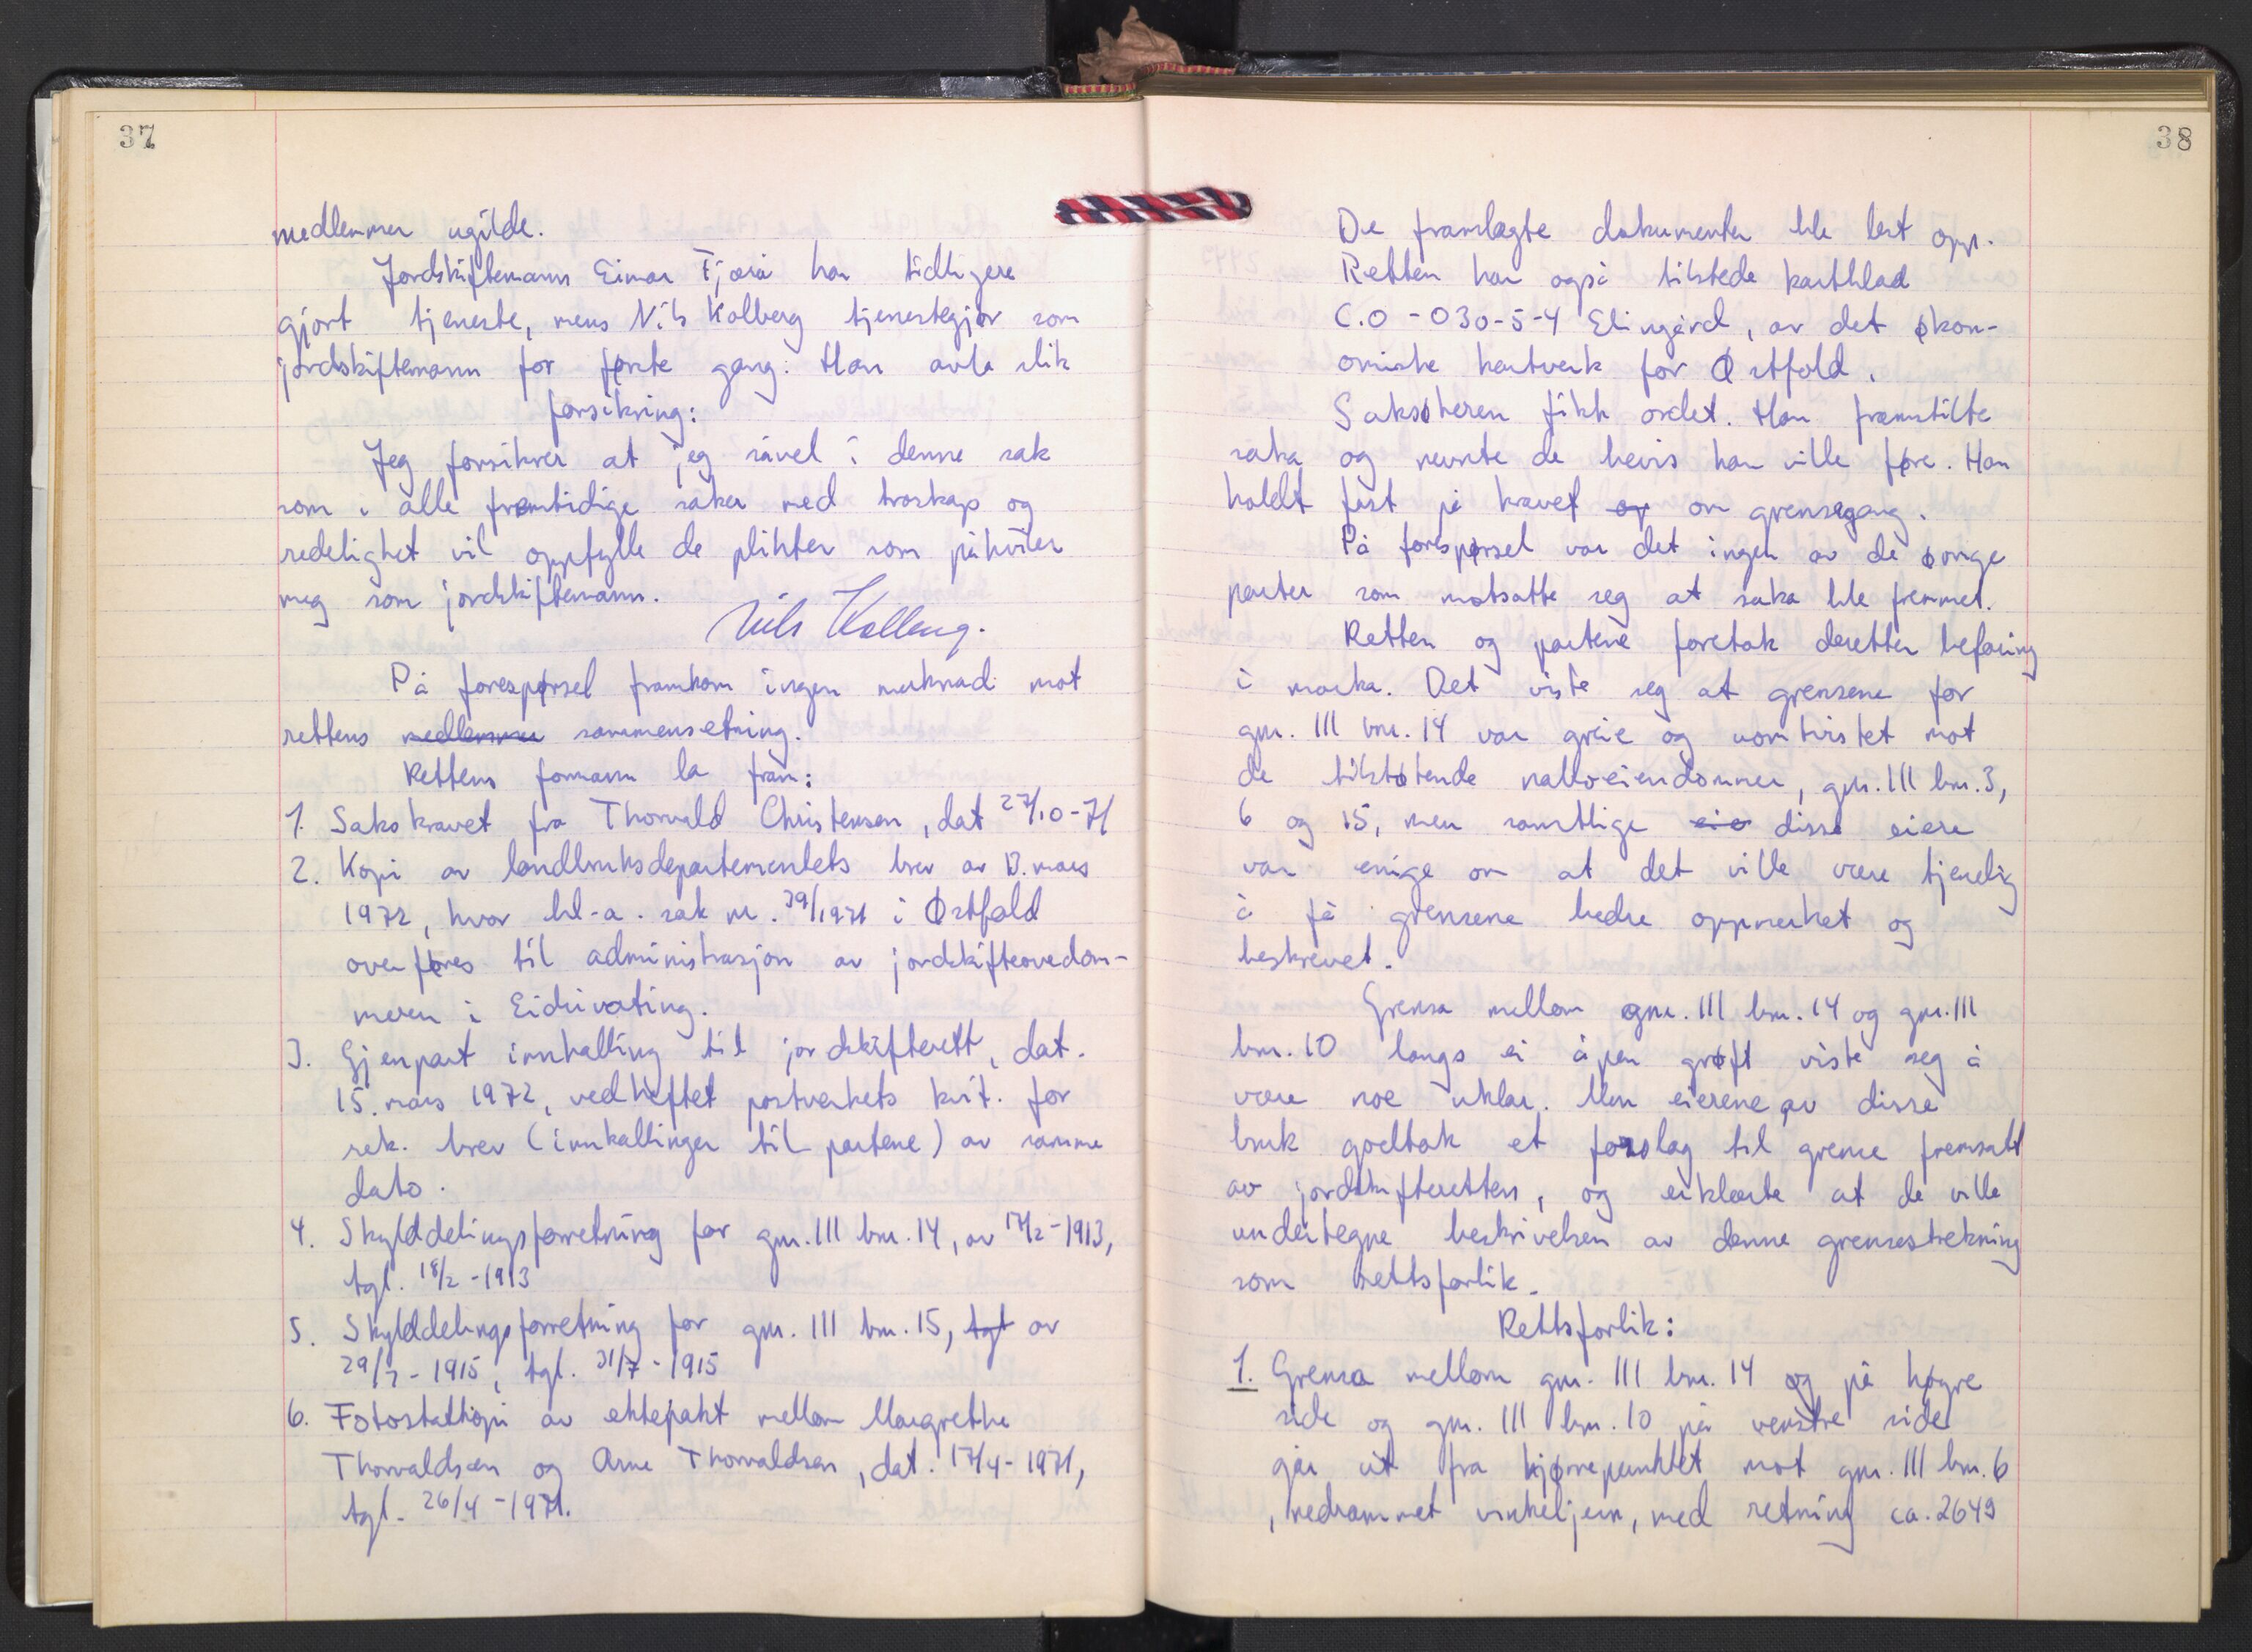 37
medlemmer ugilde.
Jordskiftemann Einar Fjærå har tidligere
gjort tjeneste, mens Nils Kolberg tjenestegjør som
jordskiftemann for første gang. Han avla slik
forsikring:
Jeg forsikrer at jeg såvel i denne sak
som i alle fremtidige saker med troskap og
redelighet vil oppfylle de plikter som påhviler
meg som jordskiftemann.
Nils Kolberg.
På forespørsel framkom ingen merknad mot
rettens medlemmer sammensetning.
Rettens formann la fram:
1. Sakskravet fra Thorvald Christensen, dat 27/10-71
2. Kopi av landbruksdepartementets brev av 13. mars
1972, hvor bl.a. sak nr. 39/1971 i Østfold
overføres til administrasjon av jordskifteovedom-
meren i Eidsivating.
3. Gjenpart innkalling til jordskifterett, dat.
15. mars 1972, vedheftet postverkets kvit. for
rek. brev (innkallinger til partene) av samme
dato.
4. Skylddelingsforretning for gnr. 111 bnr. 14, av 17/2-1913,
tgl. 18/2-1913
5. Skylddelingsforretning for gnr. 111 bnr. 15, tgl av
29/7-1915, tgl. 31/7-1915
6. Fotostatkopi av ektepakt mellom Margrethe
Thorvaldsen og Arne Thorvaldsen, dat. 17/4-1971,
tgl. 26/4-1971.
38
De framlagte dokumenter ble lest opp.
Retten har også tilstede kartblad
C.O-030-5-4 Elingård, av det økon-
omiske kartverk for Østfold.
Saksøkeren fikk ordet. Han framstilte
saka og nevnte de bevis han ville føre. Han
holdt fast på kravet og om grensegang.
På forespørsel var det ingen av de øvrige
parter som motsatte seg at saka ble fremmet.
Retten og partene foretok deretter befaring
i marka. Det viste seg at grensene for
gnr. 111 bnr. 14 var greie og uomtvistet mot
de tilstøtende naboeiendommer, gnr. 111 bnr. 3,
6 og 15, men samtlige eie disse eiere
var enige om at det ville være tjenelig
å få grensene bedre oppmerket og
beskrevet.
Grensa mellom gnr. 111 bnr. 14 og gnr. 111
bnr. 10 langs ei åpen grøft viste seg å
være noe uklar. Men eierene av disse
bruk godtok et forslag til grense fremsatt
av jordskifteretten, og erklærte at de ville
undertegne beskrivelsen av denne grensestrekning
som rettsforlik.
Rettsforlik:
1. Grensa mellom gnr. 111 bnr. 14 og på høgre
side og gnr. 111 bnr. 10 på venstre side
går ut fra hjørnepunktet mot gnr. 111 bnr. 6
, nedrammet vinkeljern, med retning ca. 2649